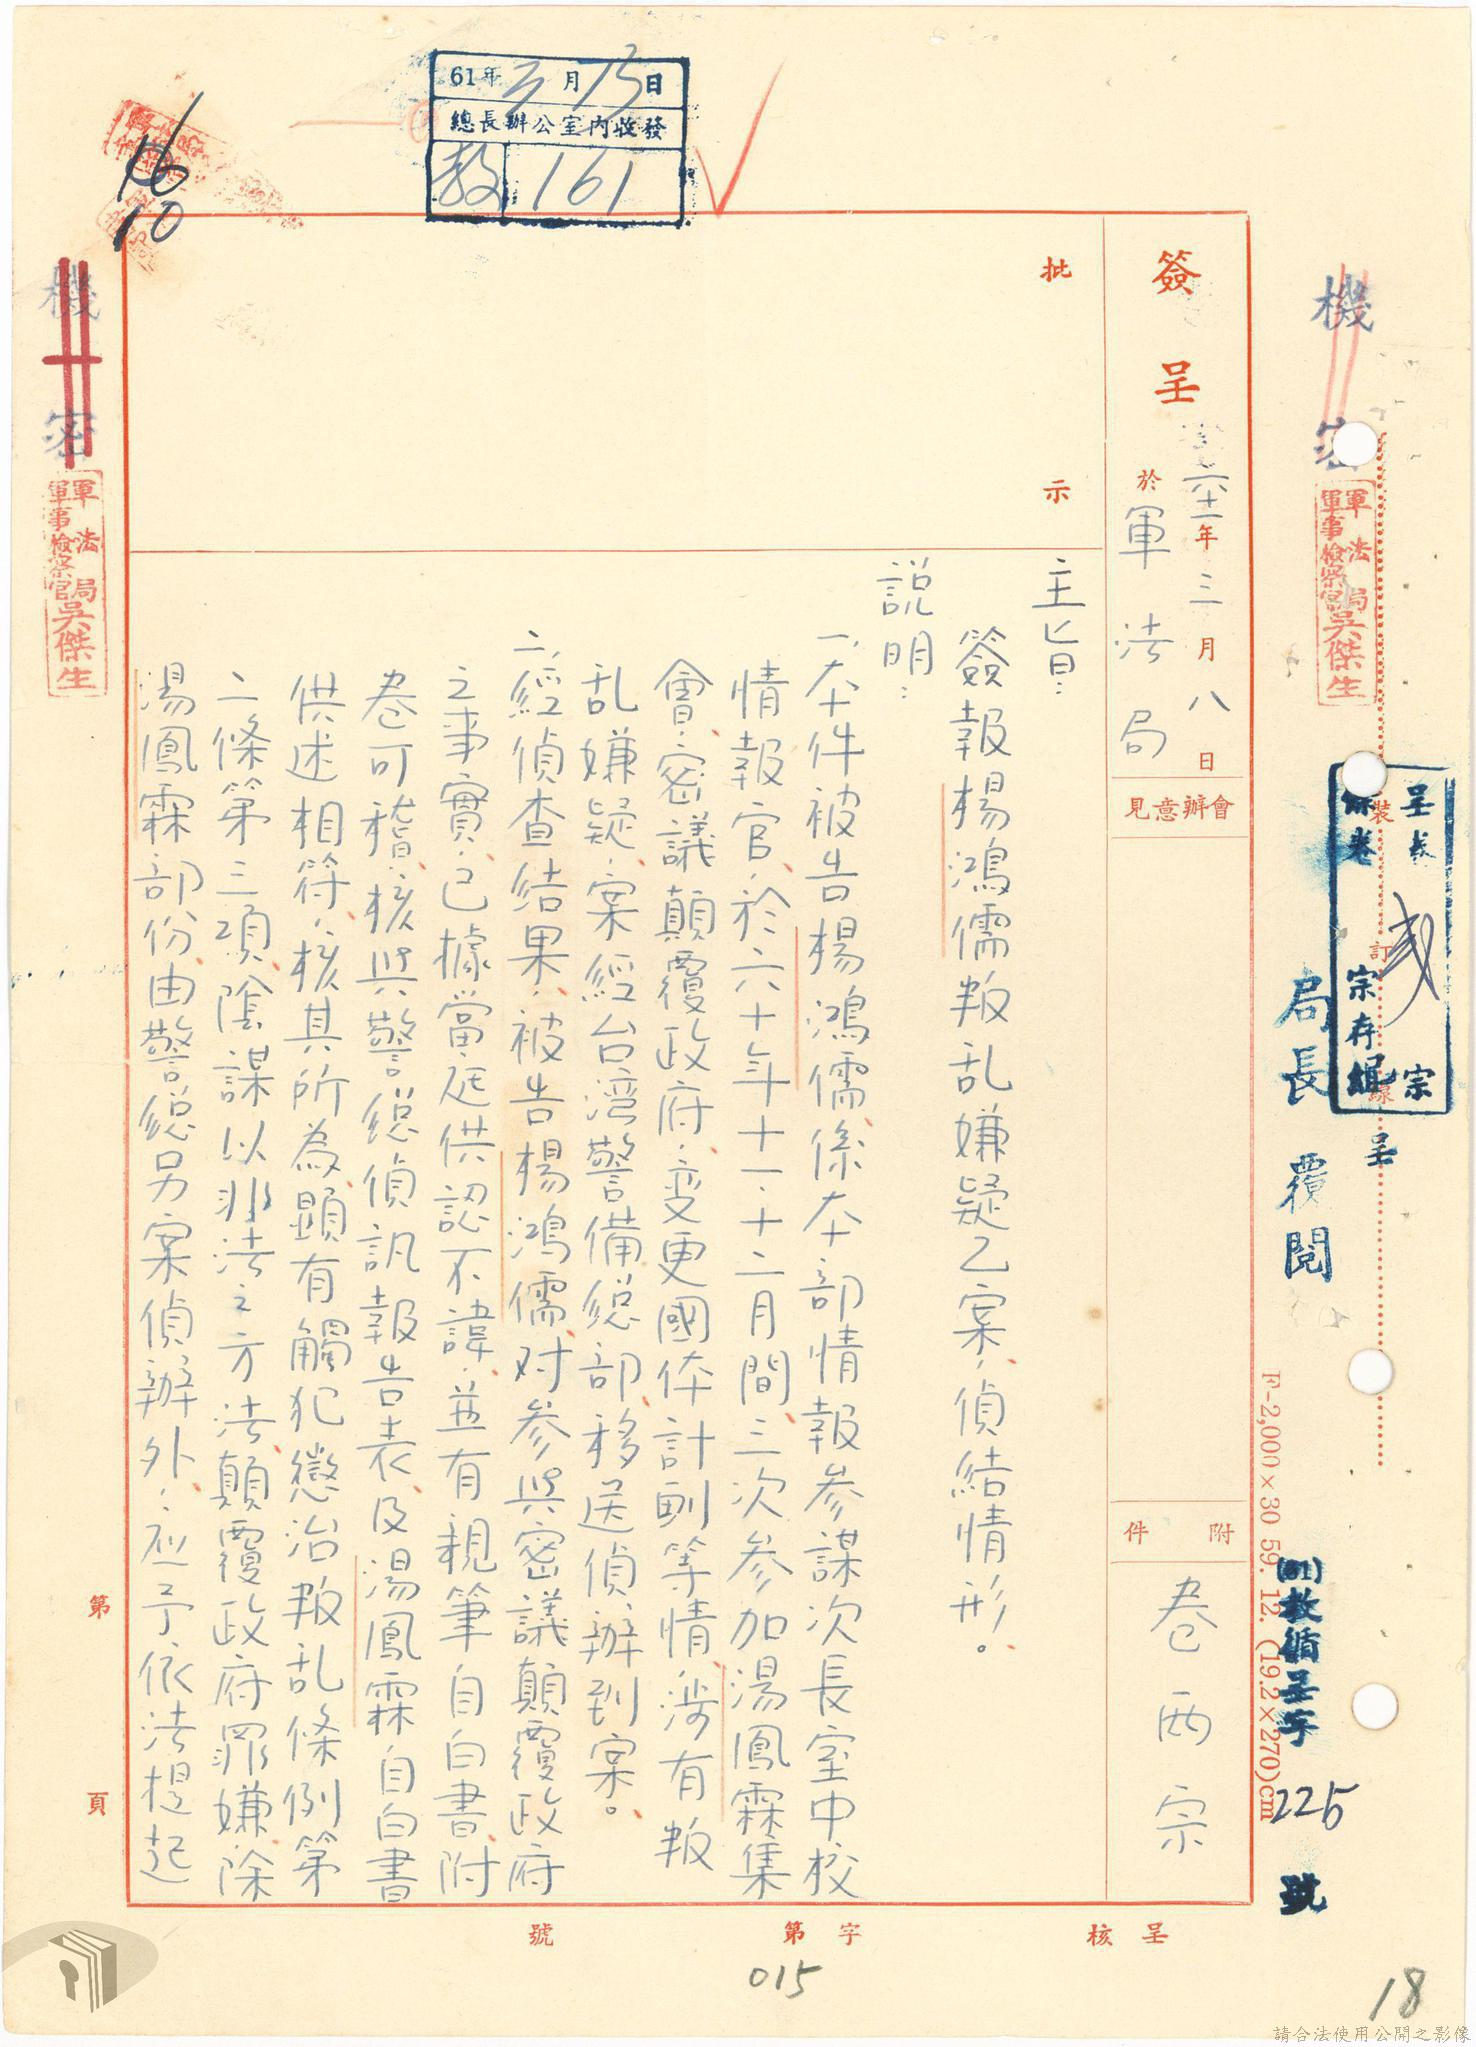 61年三月15日
總長辦公室內收發
教 161
16
10
機密
軍法局
軍事檢察官吳傑生
簽呈
六十一年三月八日
於軍法局
會辦意見
附件
卷兩宗
批示
主旨：
簽報楊鴻儒叛乱嫌疑乙案，偵結情形。
説明：
一、本件被告楊鴻儒係本部情報參謀次長室中校
情報官，於六十年十一、十二月間三次參加湯鳳霖集
會，密議顛覆政府，变更國体計劃等情，涉有叛
乱嫌疑，案經台湾警備総部移送偵辦到案。
二、經偵查結果，被告楊鴻儒对參與密議顛覆政府
之事實，已據當庭供認不諱，並有親筆自白書附
卷可稽，核與警総偵訊報告表，及湯鳳霖自白書
供述相符，核其所為顕有觸犯懲治叛乱條例第
二條第三項陰謀以非法之方法顛覆政府罪嫌，除
湯鳳霖部份由警総另案偵辦外，应予依法提起
機密
軍法局
軍事檢察官吳傑生
裝
訂
線
宗
卷
宗存
局長 覆閱
呈
F-2,000×30 59. 12. (19.2×270)cm
(61)教循呈字225號
第 頁
呈核
字第
號
015
18
請合法使用公開之影像